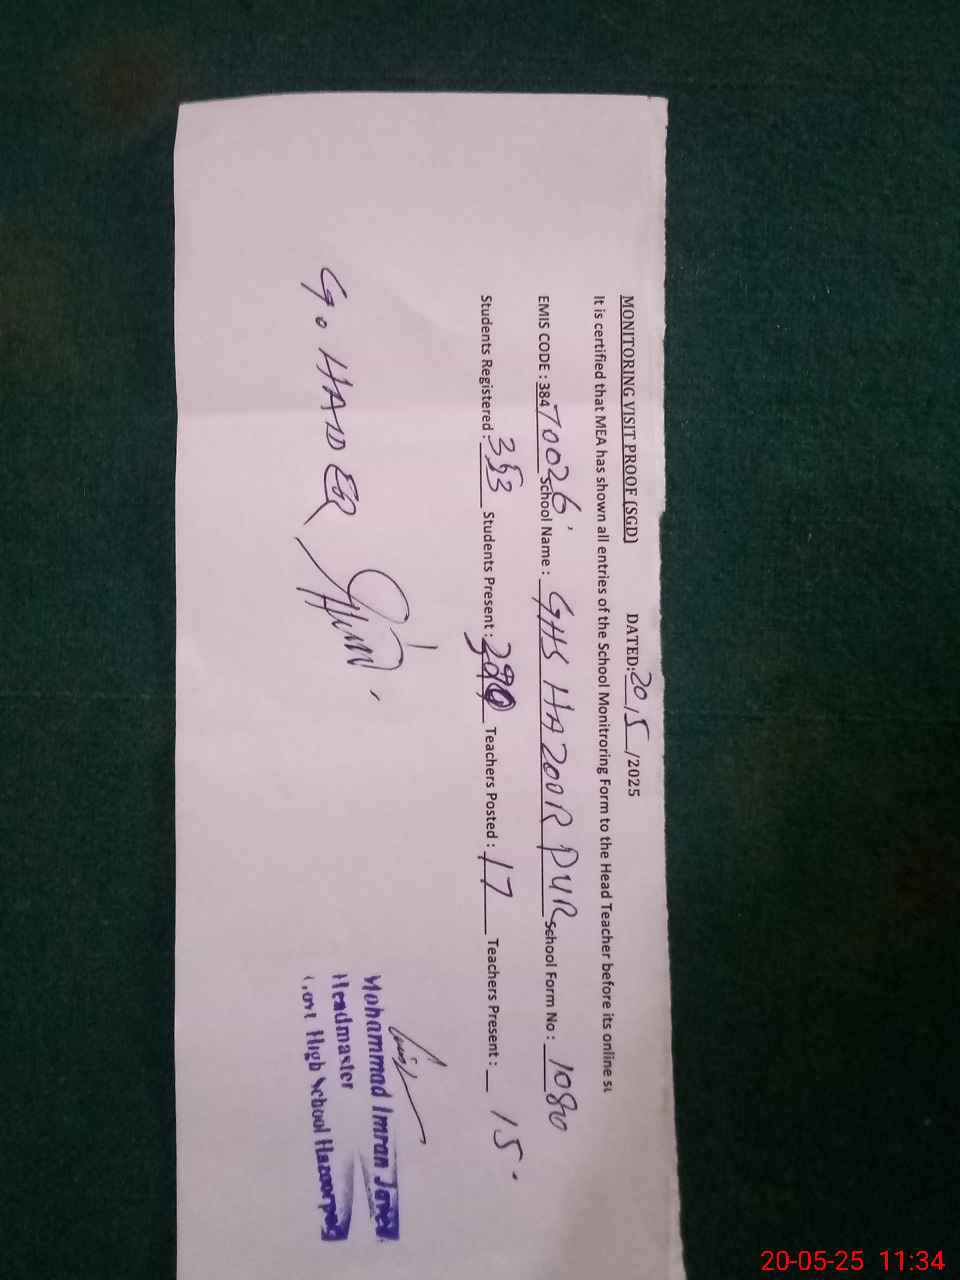 MONITORING VISIT PROOF (SGD) DATED: 20/5/2025
It is certified that MEA has shown all entries of the School Monitroring Form to the Head Teacher before its online su
EMIS CODE : 38470026 School Name : GHS HAZOOR PUR School Form No : 1080
Students Registered : 353 Students Present : 290 Teachers Posted : 17 Teachers Present : 15
Mohammad Imran
Headmaster
Govt High School Hazoorpur
20-05-25 11:34